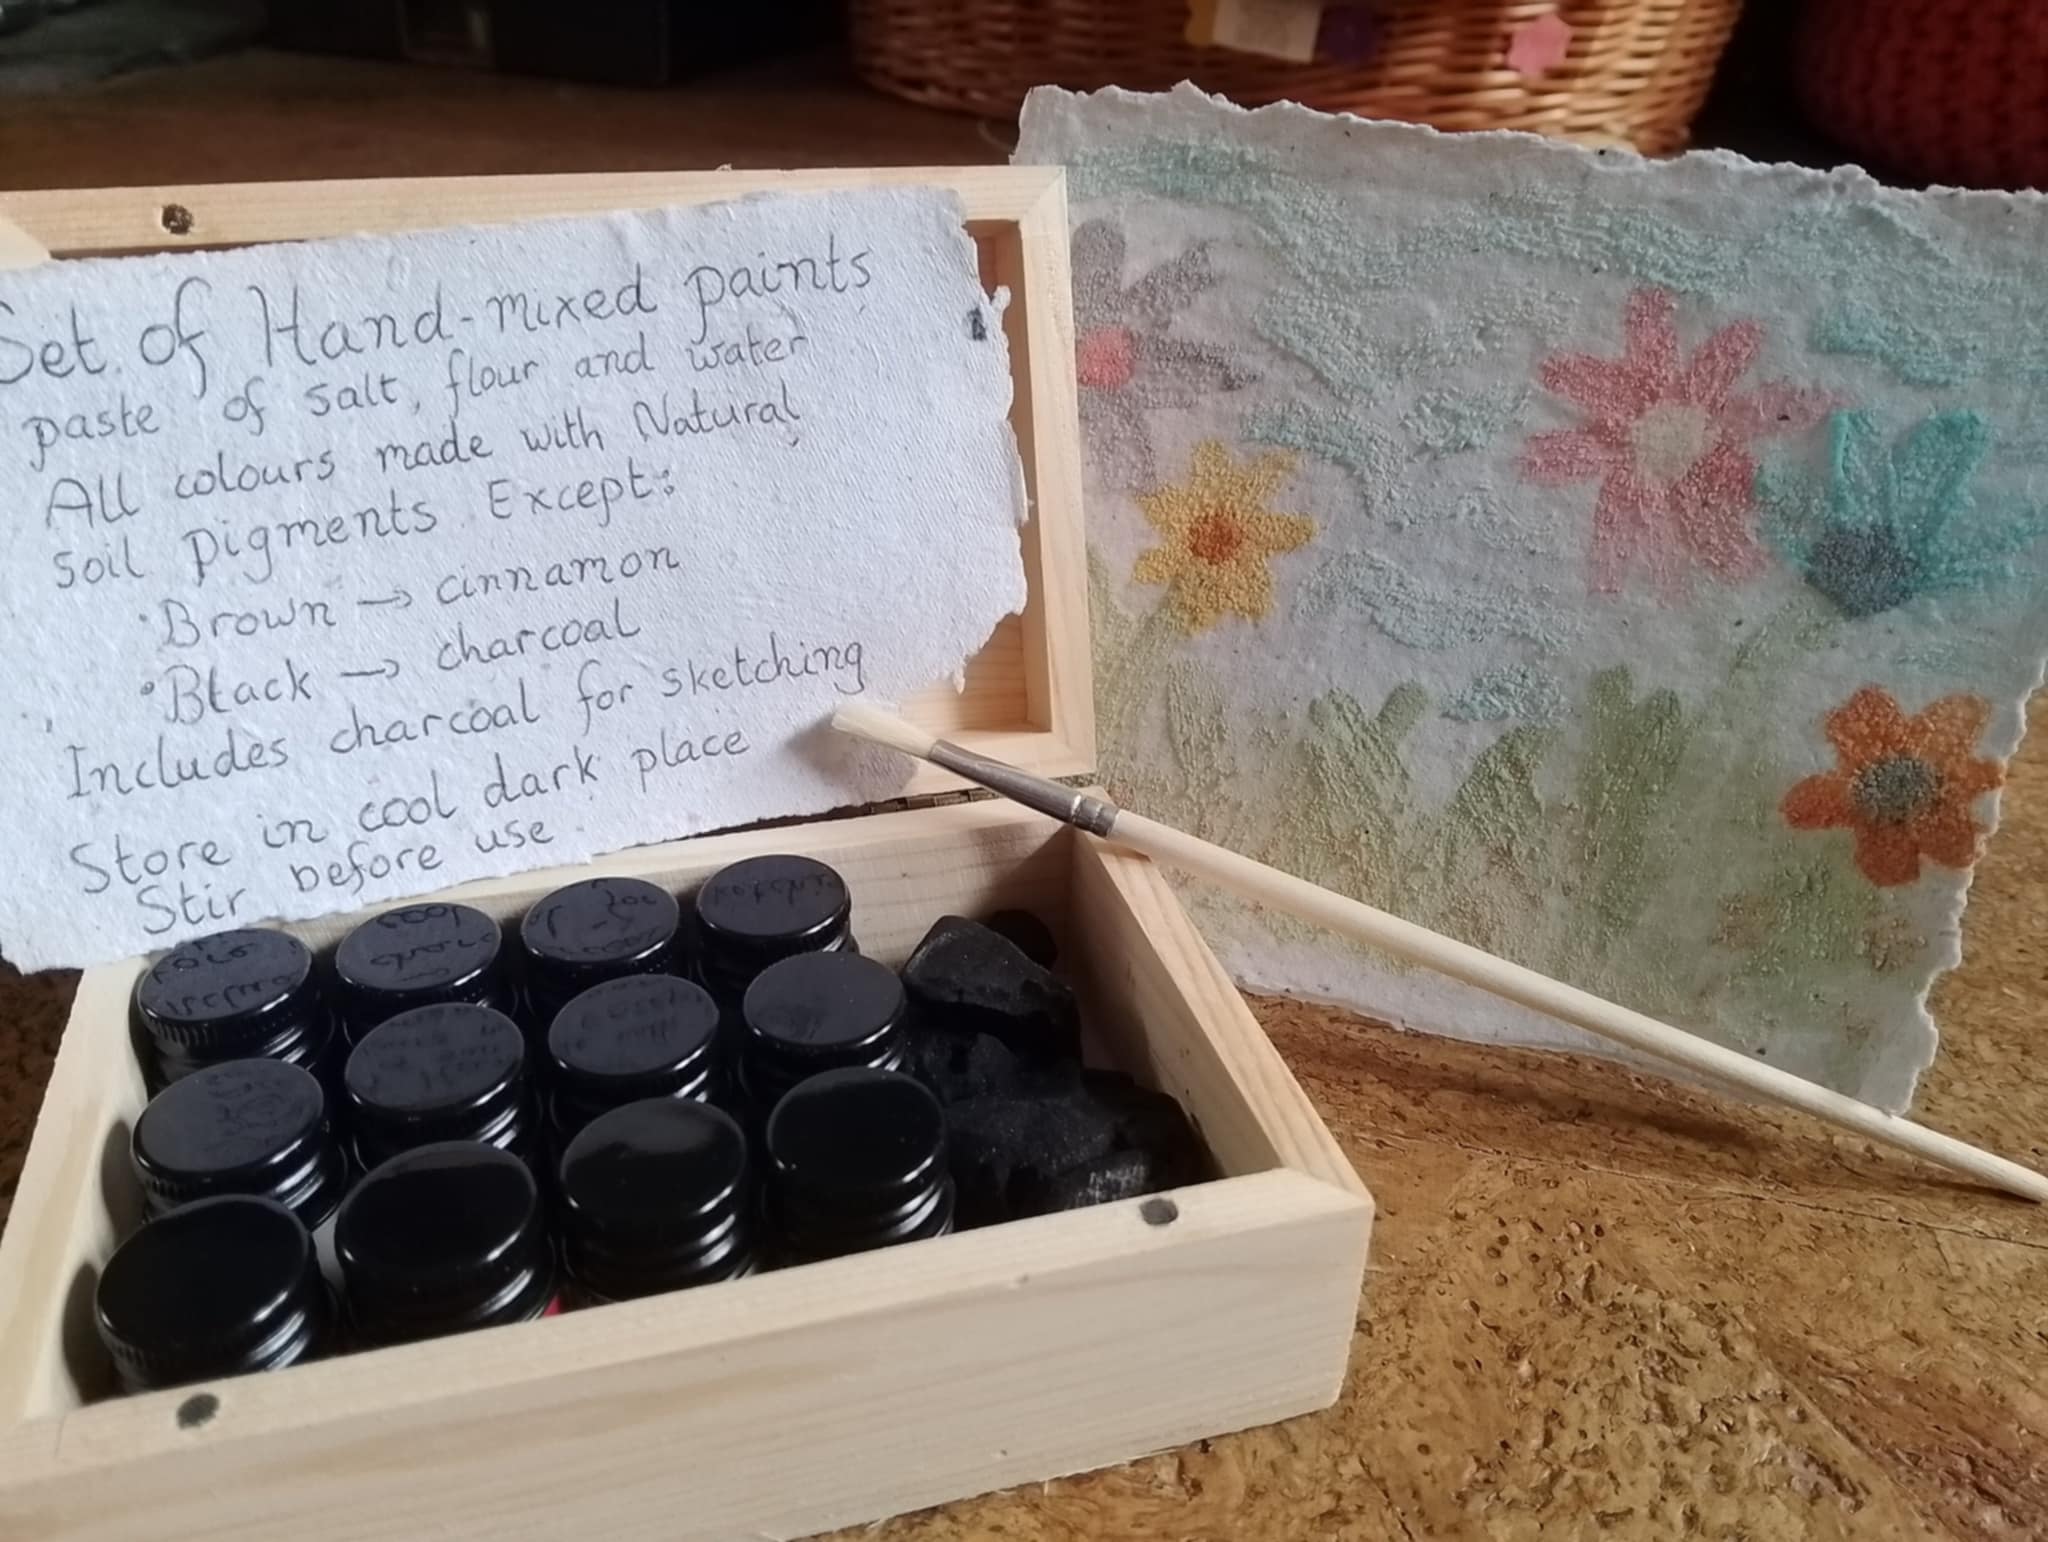 Set of Hand-mixed paints
paste of salt, flour and water
All colours made with Natural
soil pigments Except:
•Brown → cinnamon
•Black → charcoal
Includes charcoal for sketching
Store in cool dark place
Stir before use